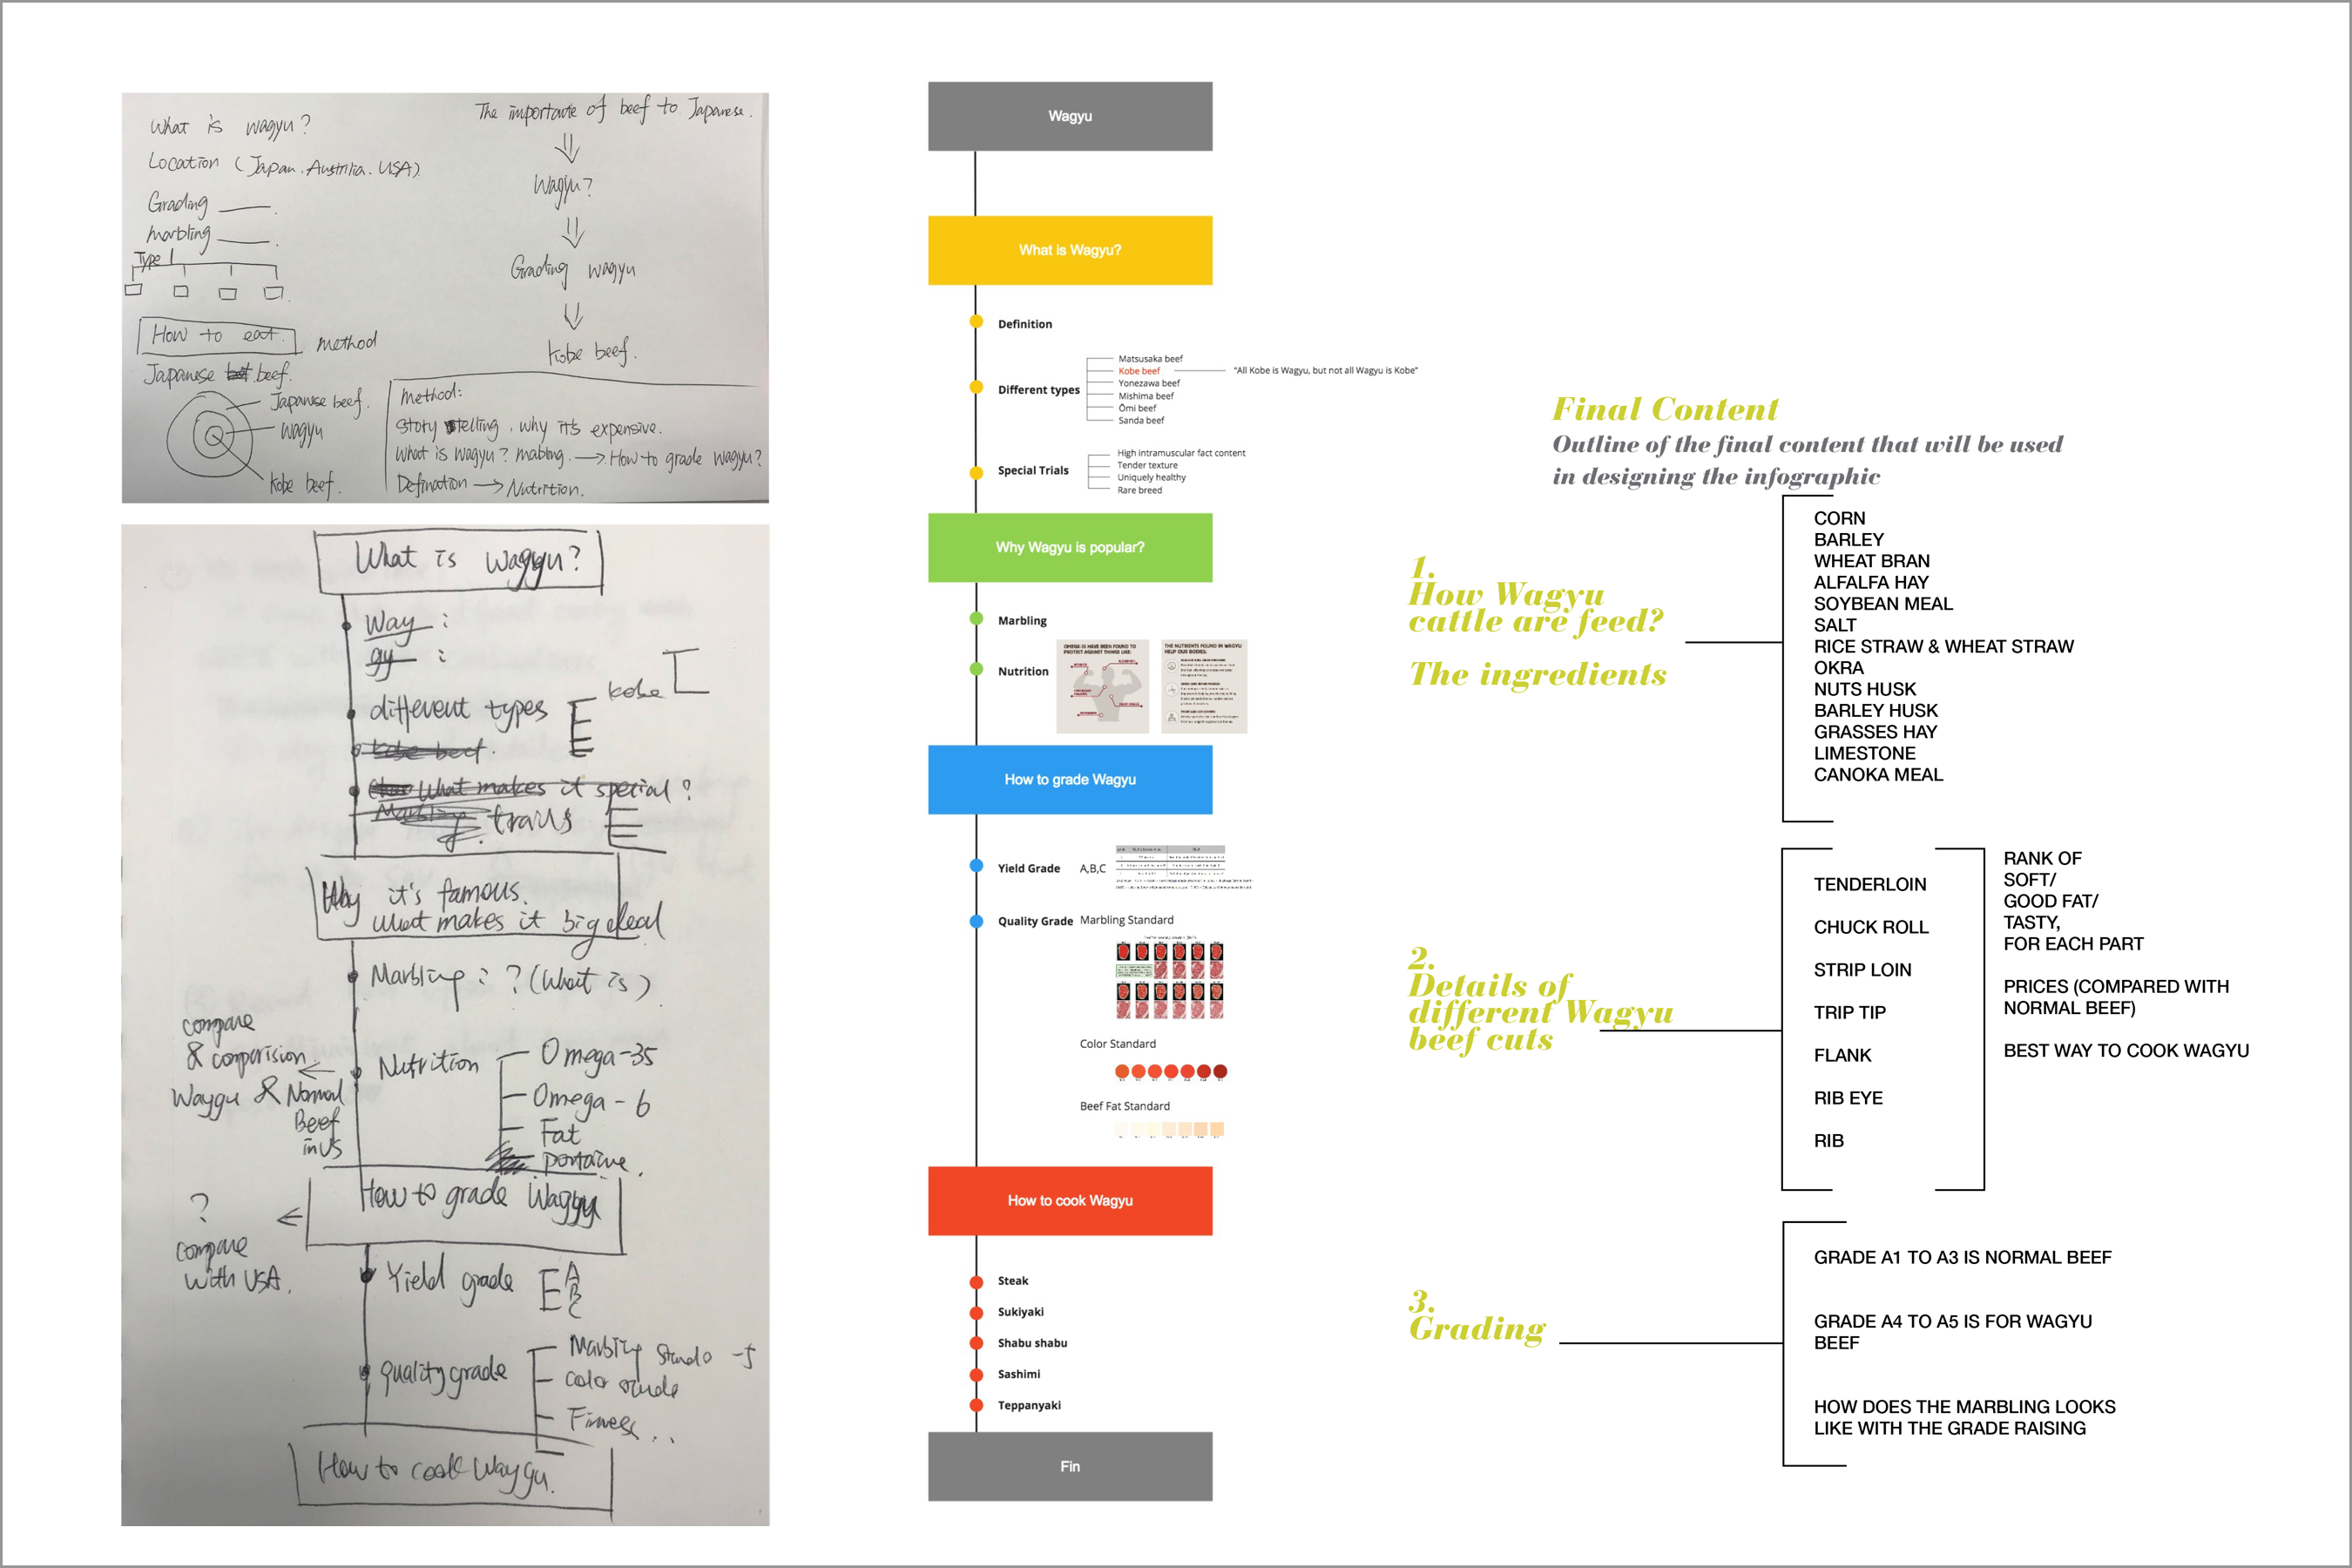 What is wagyu?
Location (Japan. Austrilia. USA)
Grading
marbling
Type 1
How to eat.
method
Japanese beef.
Japanese beef.
wagyu
kobe beef.
The importante of beef to Japanese.
Wagyu?
Grading wagyu
kobe beef.
Method:
Story telling, why it's expensive.
What is wagyu? mabling. → How to grade wagyu?
Defination → Nutrition.
What is wagyu?
Way :
gy :
different types
kobe
kobe beef.
What makes it special?
Marbling
traits
Why it's famous.
what makes it big deal
Marbling : ? (What is)
compare
& comparision
Waygu & Normal
Beef
in US
Nutrition
Omega-35
Omega-6
Fat
How to grade Wagyu
?
compare
with USA.
Yield grade
A
B
C
quality grade
Marbling
color
How to cook Waygu.
Wagyu
What is Wagyu?
Definition
Different types
Matsusaka beef
Kobe beef
"All Kobe is Wagyu, but not all Wagyu is Kobe"
Yonezawa beef
Mishima beef
Ōmi beef
Sanda beef
Special Trials
High intramuscular fact content
Tender texture
Uniquely healthy
Rare breed
Why Wagyu is popular?
Marbling
Nutrition
OMEGA-3S HAVE BEEN FOUND TO
PROTECT AGAINST THINGS LIKE:
THE NUTRIENTS FOUND IN WAGYU
HELP OUR BODIES:
How to grade Wagyu
Yield Grade
A,B,C
Quality Grade
Marbling Standard
Color Standard
Beef Fat Standard
How to cook Wagyu
Steak
Sukiyaki
Shabu shabu
Sashimi
Teppanyaki
Fin
Final Content
Outline of the final content that will be used
in designing the infographic
1.
How Wagyu
cattle are feed?
The ingredients
CORN
BARLEY
WHEAT BRAN
ALFALFA HAY
SOYBEAN MEAL
SALT
RICE STRAW & WHEAT STRAW
OKRA
NUTS HUSK
BARLEY HUSK
GRASSES HAY
LIMESTONE
CANOKA MEAL
2.
Details of
different Wagyu
beef cuts
TENDERLOIN
CHUCK ROLL
STRIP LOIN
TRIP TIP
FLANK
RIB EYE
RIB
RANK OF
SOFT/
GOOD FAT/
TASTY,
FOR EACH PART
PRICES (COMPARED WITH
NORMAL BEEF)
BEST WAY TO COOK WAGYU
3.
Grading
GRADE A1 TO A3 IS NORMAL BEEF
GRADE A4 TO A5 IS FOR WAGYU
BEEF
HOW DOES THE MARBLING LOOKS
LIKE WITH THE GRADE RAISING